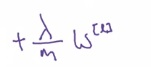 + \frac{\lambda}{m} W^{[l]}